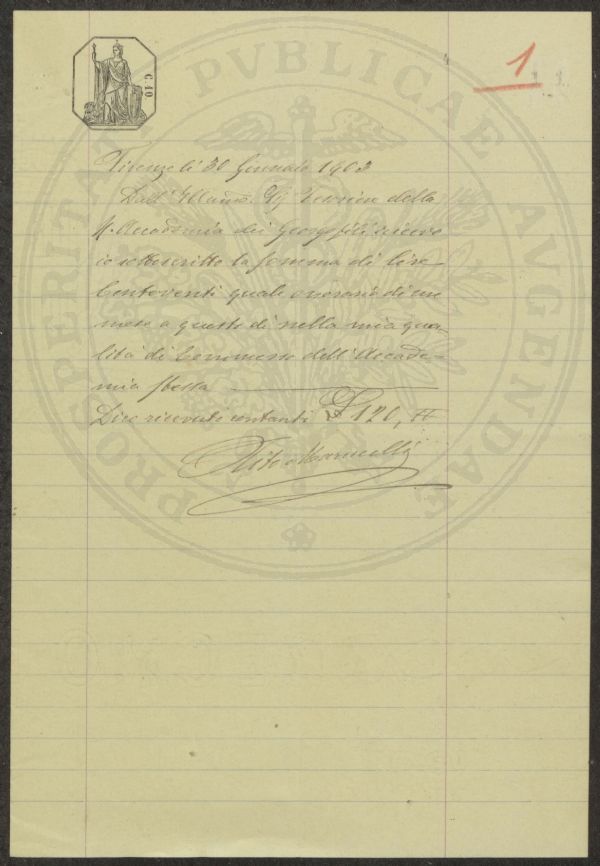 1
C. 10
PROSPERITATI PVBLICAE AVGENDAE
Firenze li 30 Gennaio 1903
Dall' Illmo. Sig Tesoriere della
R. Accademia dei Georgofili ricevo
io sottoscritto la somma di lire
Centoventi quale onorario di un
mese a questo dì nella mia qua-
lità di Commesso dell' Accade-
mia stessa
Dico ricevute contanti £ 120,